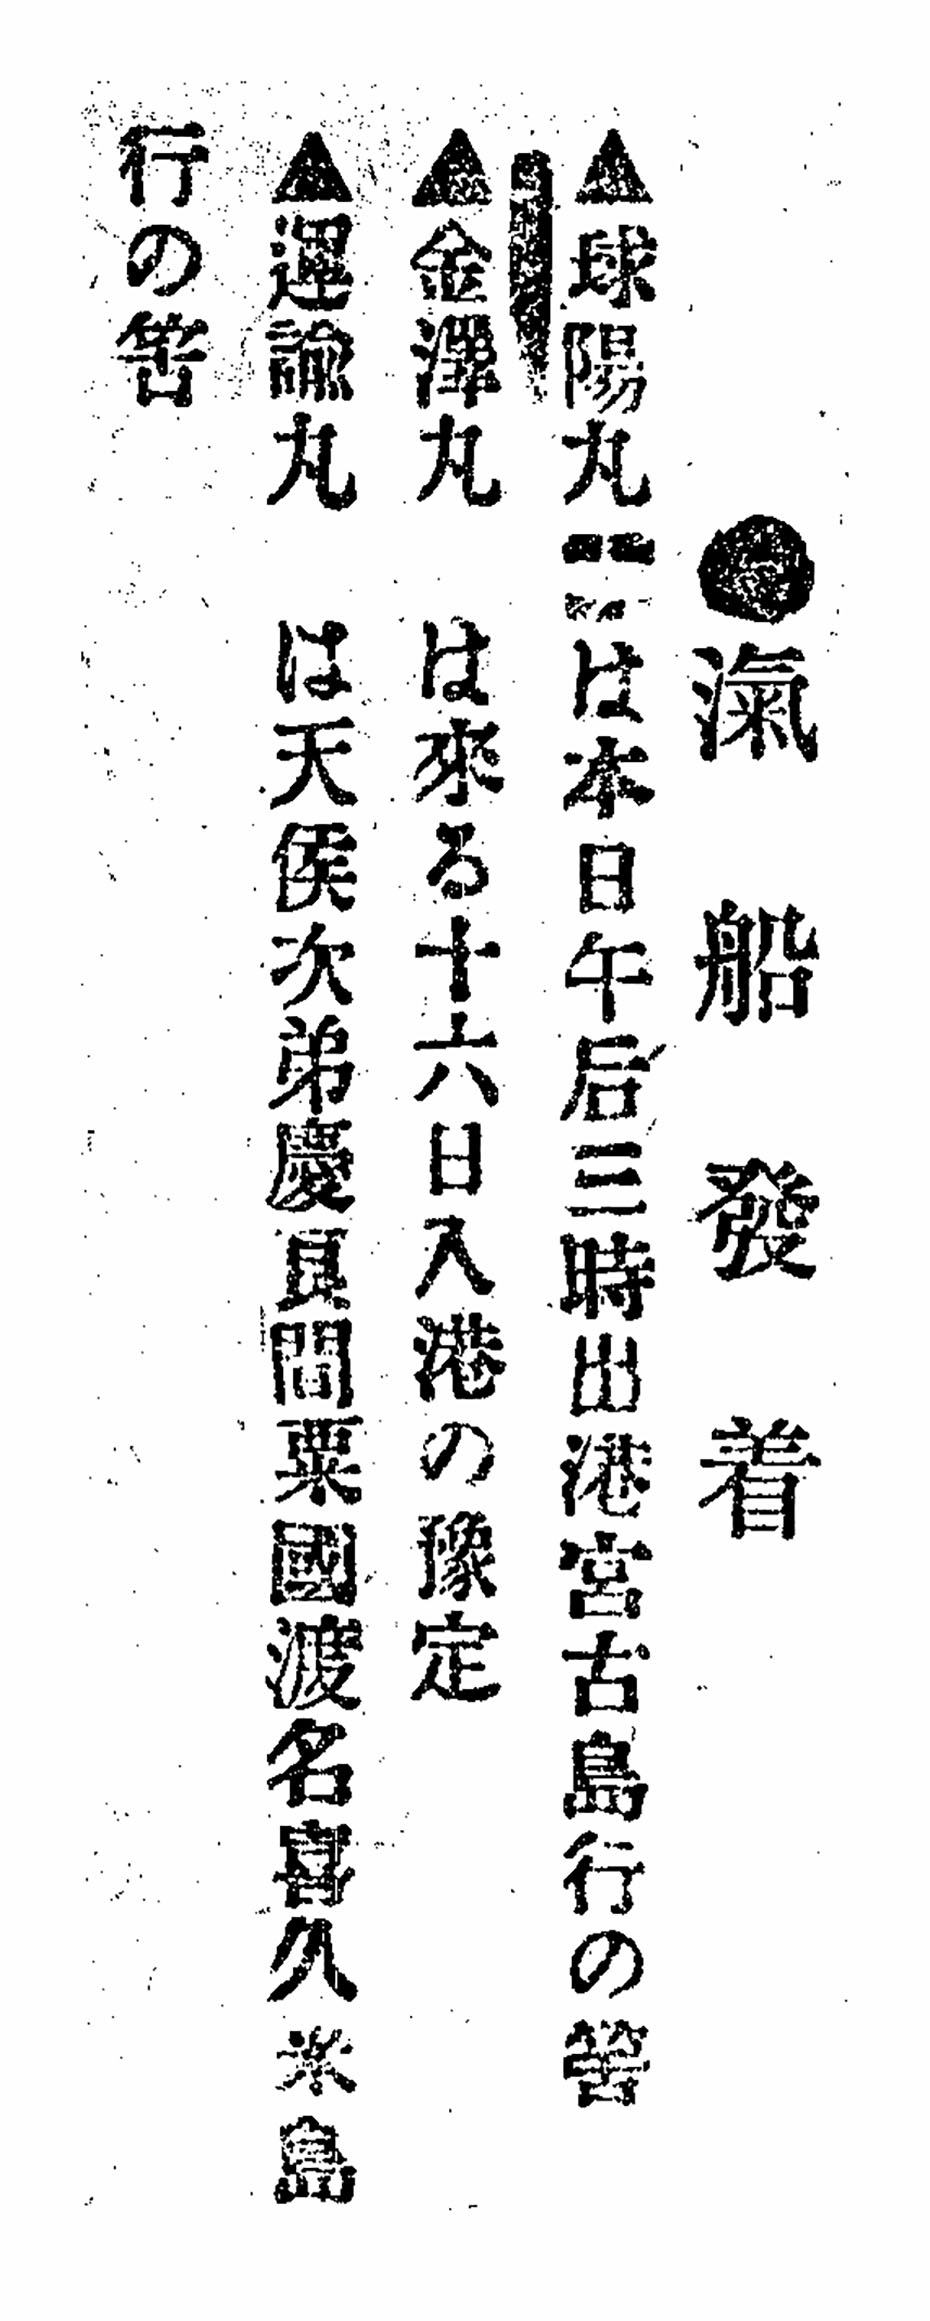 ●滊船發着
▲球陽丸 は本日午后三時出港宮古島行の筈
▲金澤丸 は來る十六日入港の豫定
▲運諭丸 は天候次第慶良間粟國渡名喜久米島
行の筈